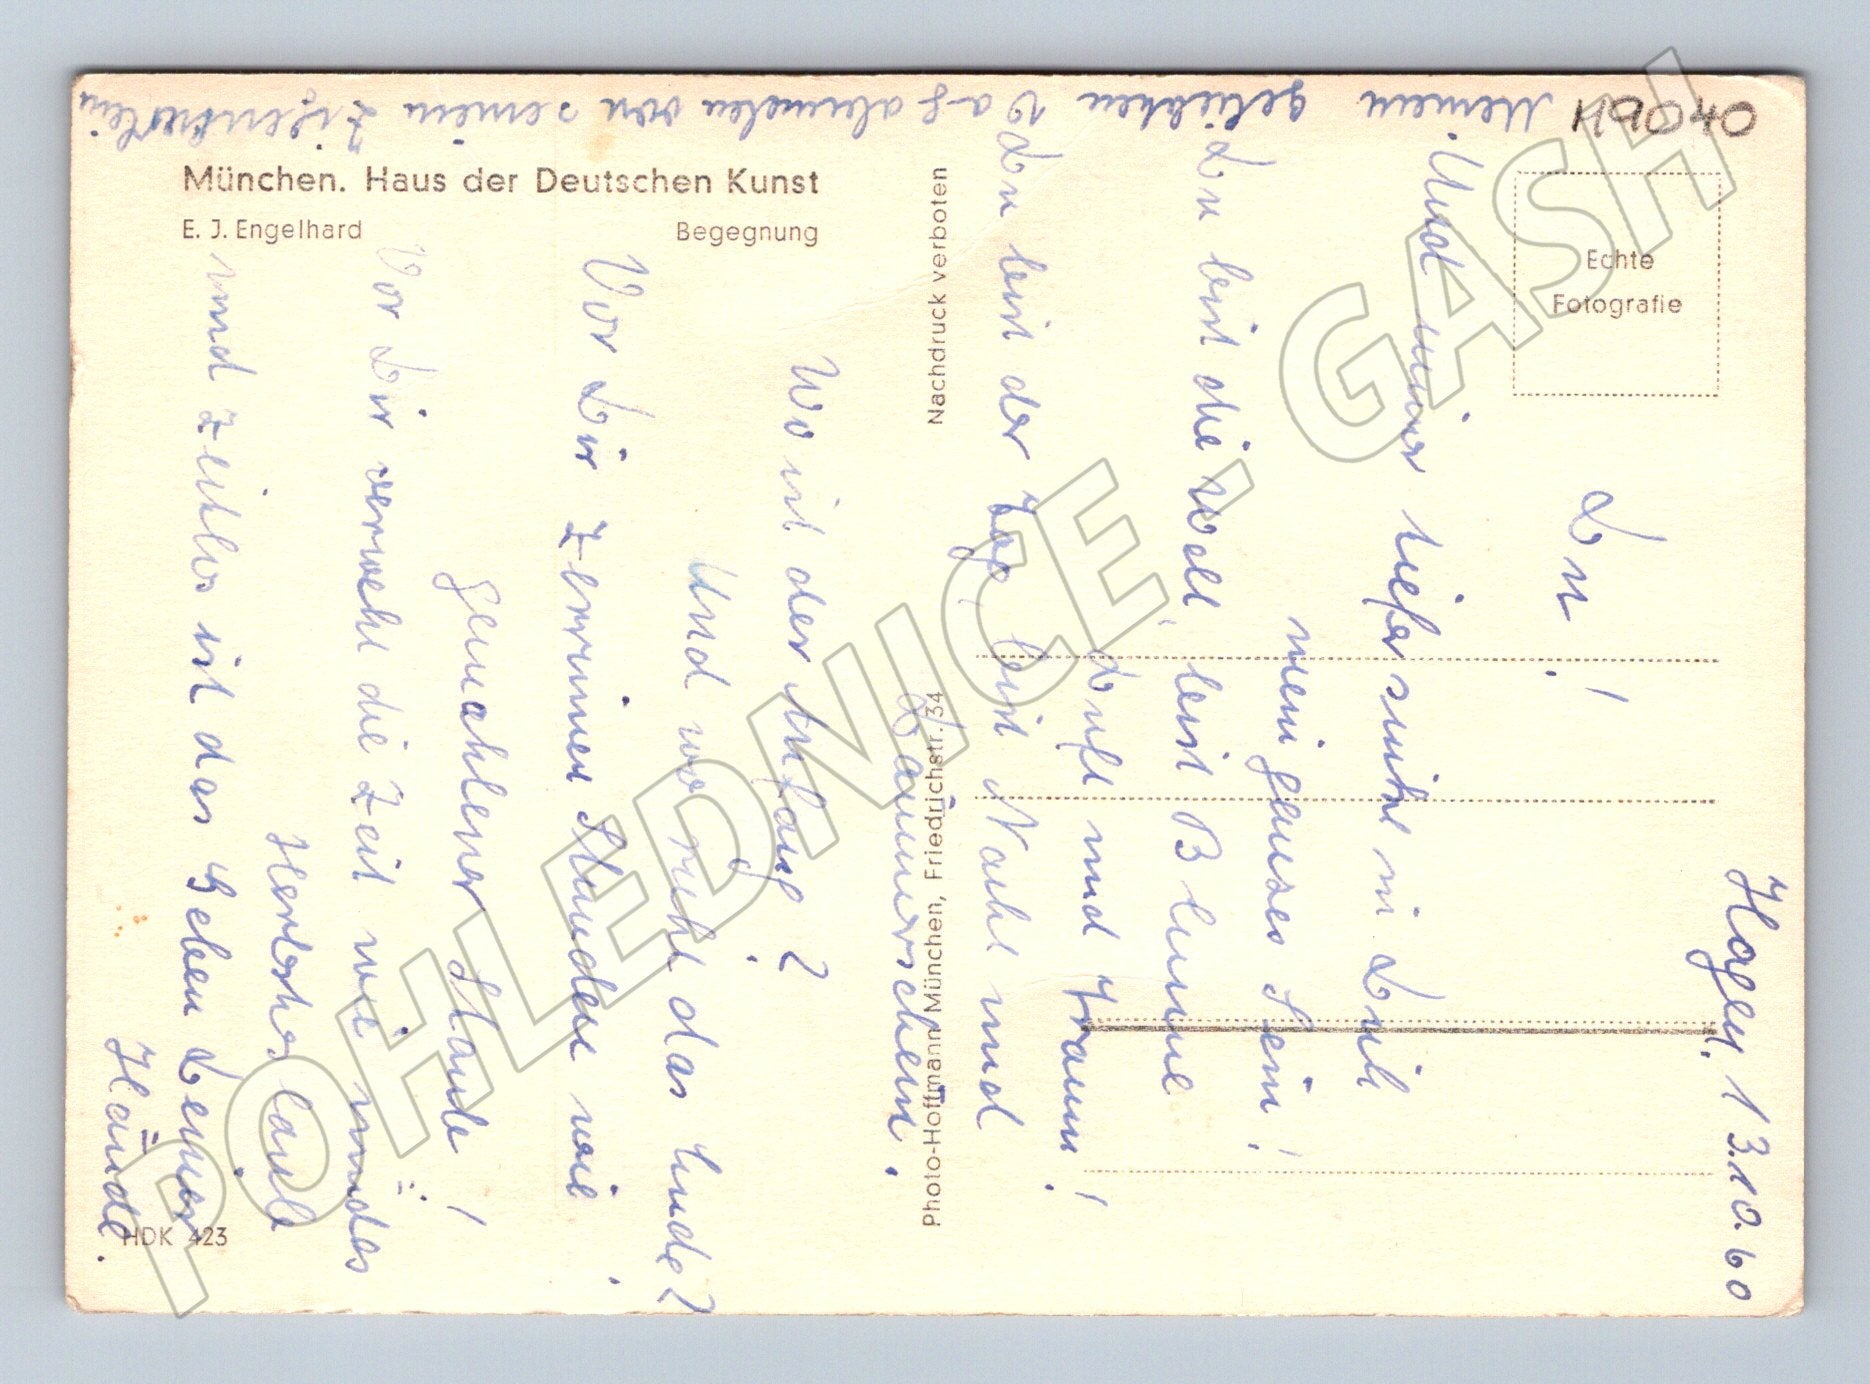 München. Haus der Deutschen Kunst
E. J. Engelhard
Begegnung
Nachdruck verboten
Photo-Hoffmann München, Friedrichstr. 34
Echte
Fotografie
HDK 423
H91040
Hagen, 13.10.60
Du!
Und immer tiefer sinkt in Dich
mein ganzes Sein!
Du bist die Welt, bist Blume
Duft und Traum!
Du bist der Tag, bist Nacht und
Dämmerschein.
Wo ist der Anfang?
Und wo ruht das Ende?
Vor Dir zerrinnen Stunden wie
gemahlener Staub!
Vor Dir verweht die Zeit wie mürdes
Herbstes laub
und zeitlos ist das Geben Deiner
Hände.
Meinem geliebten Vagabunden von seinem Zigeunerlein
POHLEDNICE - GASH